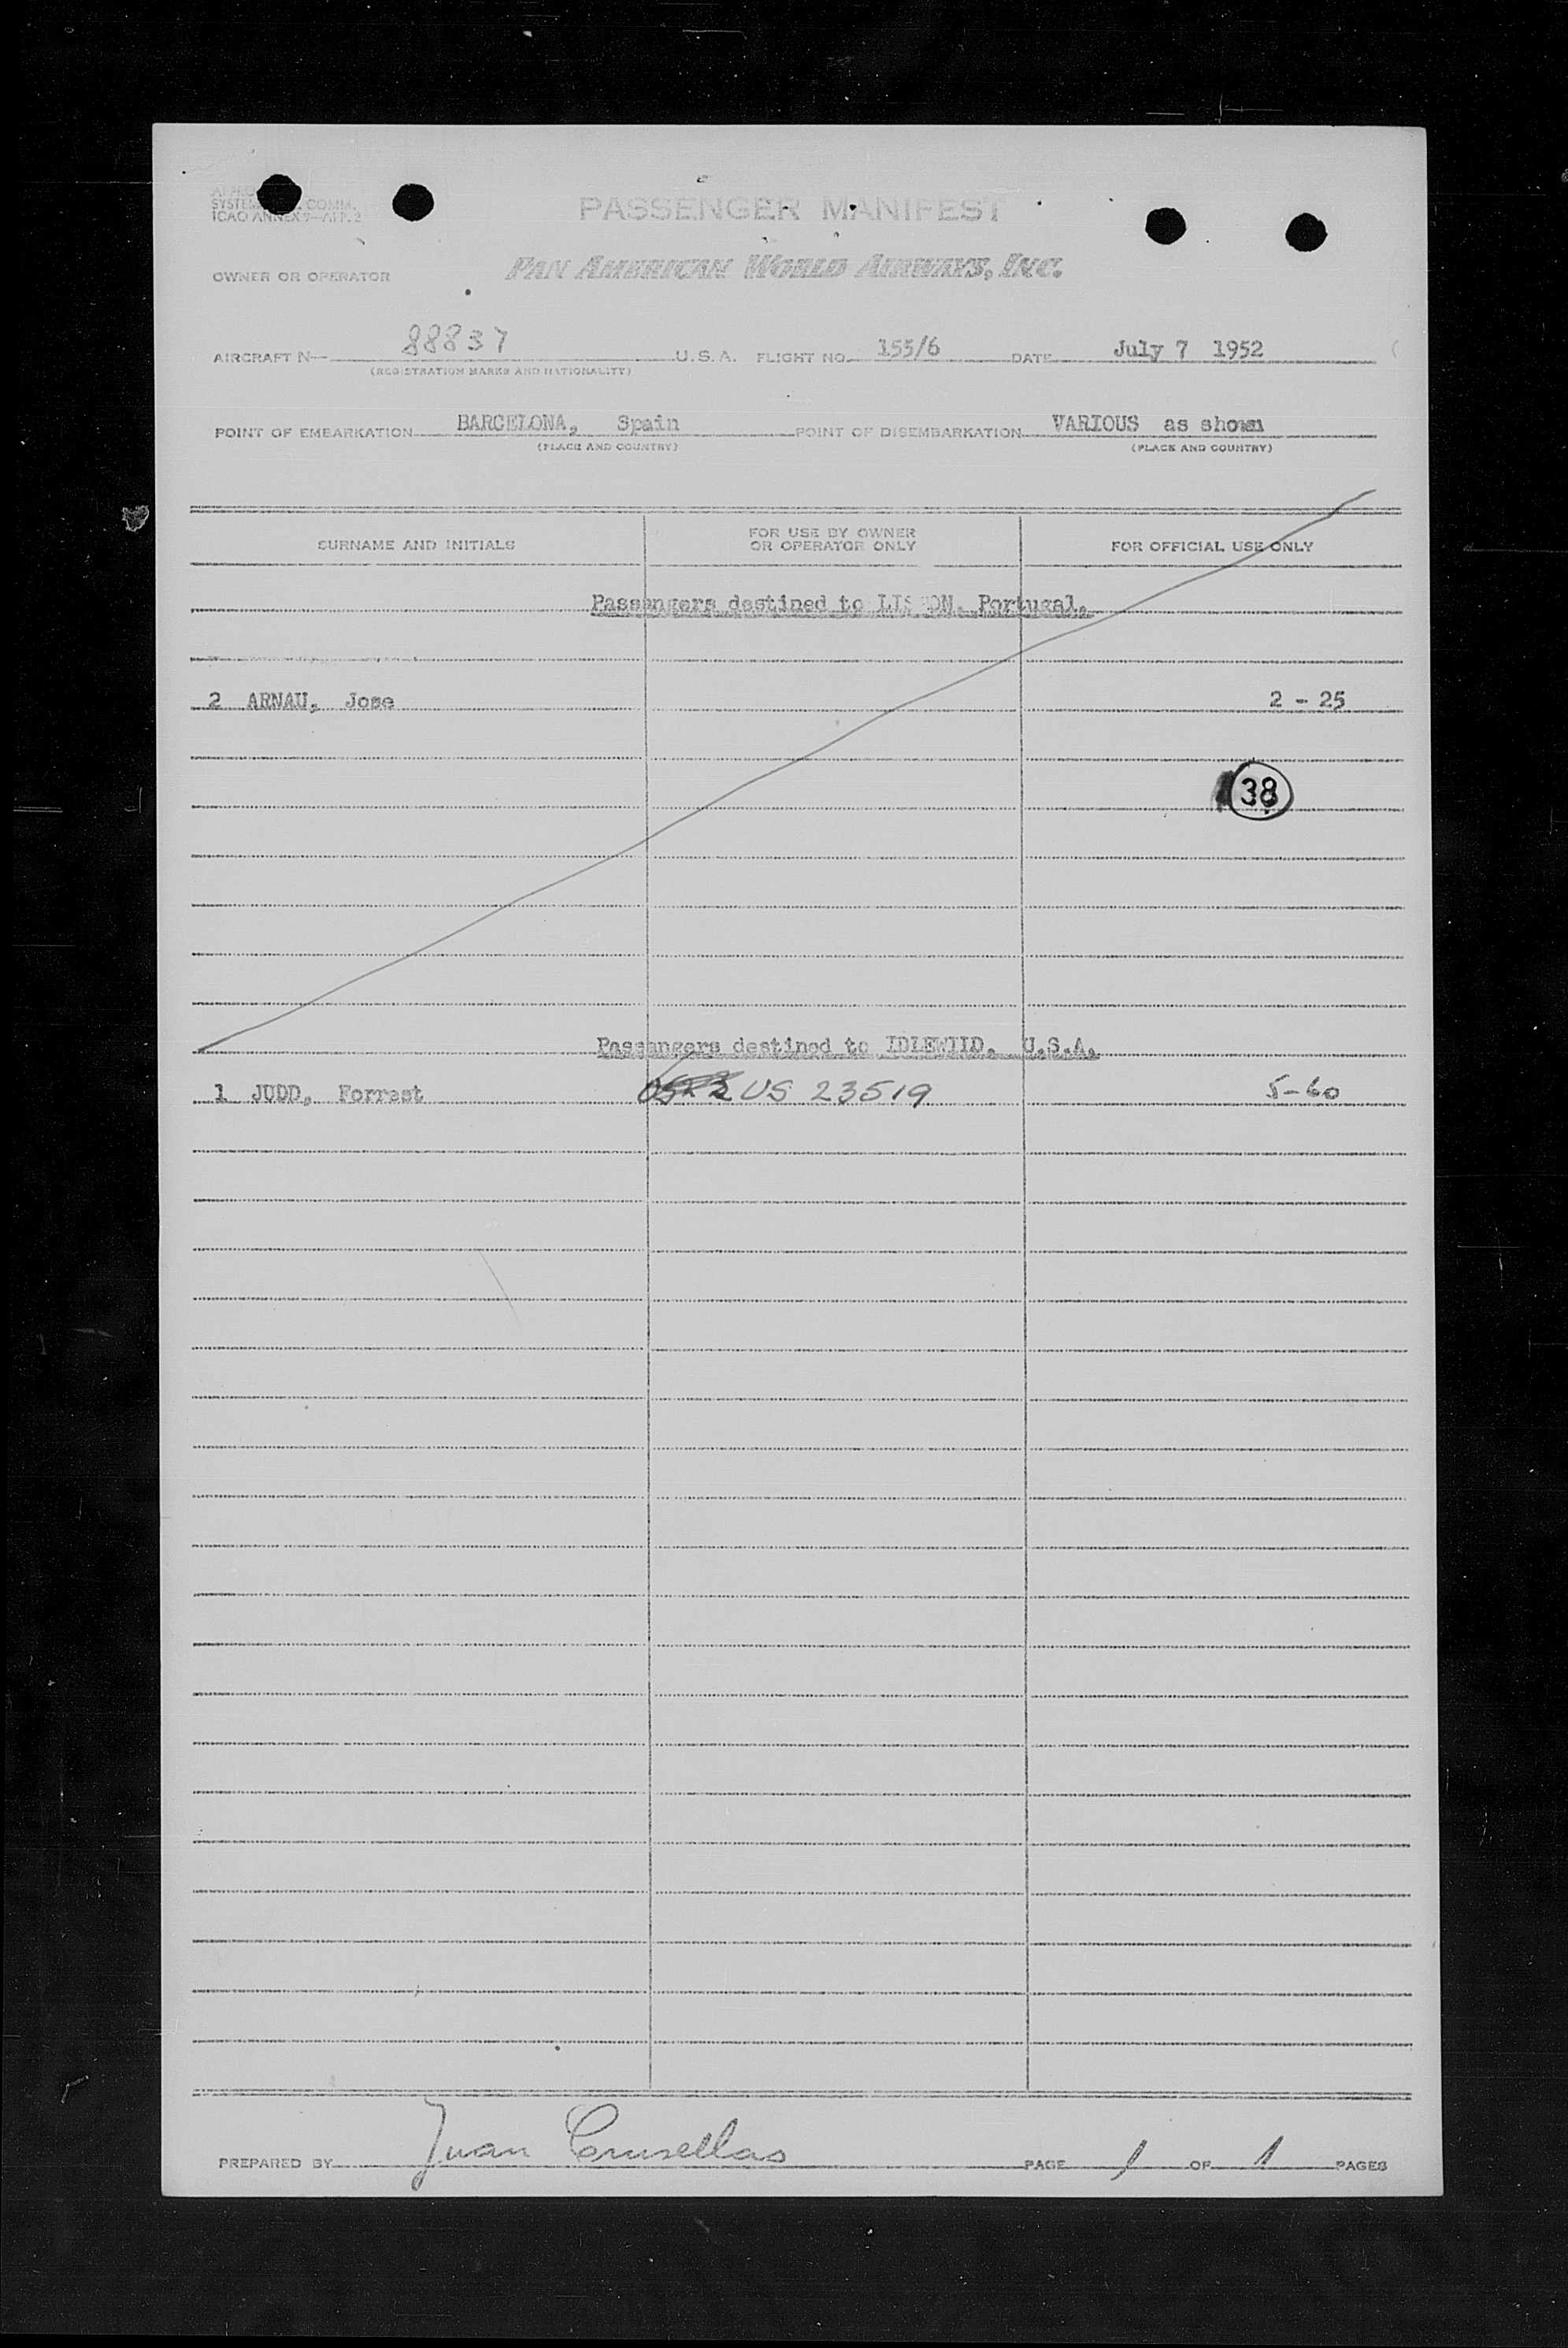 SYSTEM COMM.
ICAO ANNEX 9—APP. 2
PASSENGER MANIFEST
OWNER OR OPERATOR PAN AMERICAN WORLD AIRWAYS, INC.
AIRCRAFT N— 88837 U.S.A. FLIGHT NO. 155/6 DATE July 7 1952
(REGISTRATION MARKS AND NATIONALITY)
POINT OF EMBARKATION BARCELONA, Spain POINT OF DISEMBARKATION VARIOUS as shown
(PLACE AND COUNTRY) (PLACE AND COUNTRY)
SURNAME AND INITIALS FOR USE BY OWNER OR OPERATOR ONLY FOR OFFICIAL USE ONLY
Passengers destined to LISBON. Portugal.
2 ARNAU, Jose 2 - 25
38
Passangers destined to IDLEWIID. U.S.A.
1 JUDD, Forrest US 23519 5-60
PREPARED BY Juan Crusellas PAGE 1 OF 1 PAGES